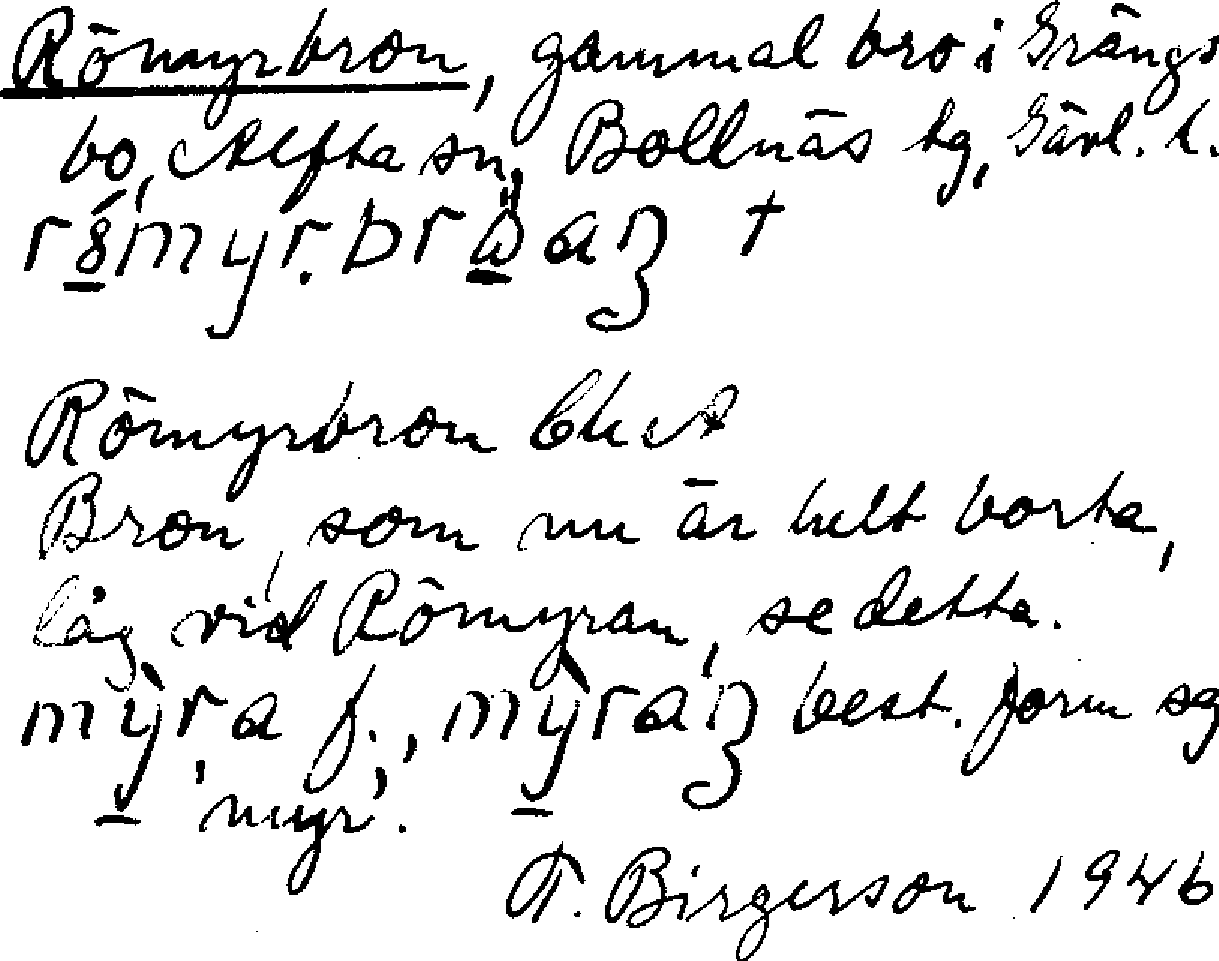 Römyrbron, gammal bro i Grängs
bo, Alfta sn, Bollnäs tg, Gävl. l.
Römyrbron
Bron, som nu är helt borta,
låg vid Römyran, se detta.
mỳra f., best. form sg
'myr'.
T. Birgerson 1946